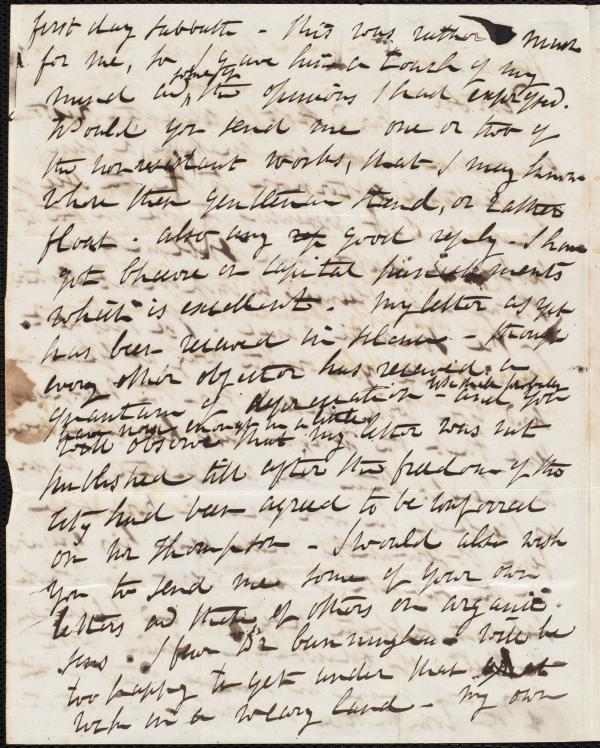 first day sabbath - This was rather much
for me, so I gave him a touch of my
mind on some of the opinions I had expressed.
Would you send me one or two of
the non resistant works, that I may know
where these gentlemen stand, or rather
float - also any good reply - I have
got Cheever on capital punishments
which is excellent. My letter as yet
has been received in silence - though
every other objector has received a
quantum of depreciation - and you
have now enough in a little
will observe that my letter was not
published till after the freedom of the
City had been agreed to be conferred
on Mr Thompson - I would also wish
you to send me some of your own
letters and those of others on organic
sins. I fear Dr Cunningham will be
too happy to get under that
in a weary land - My own